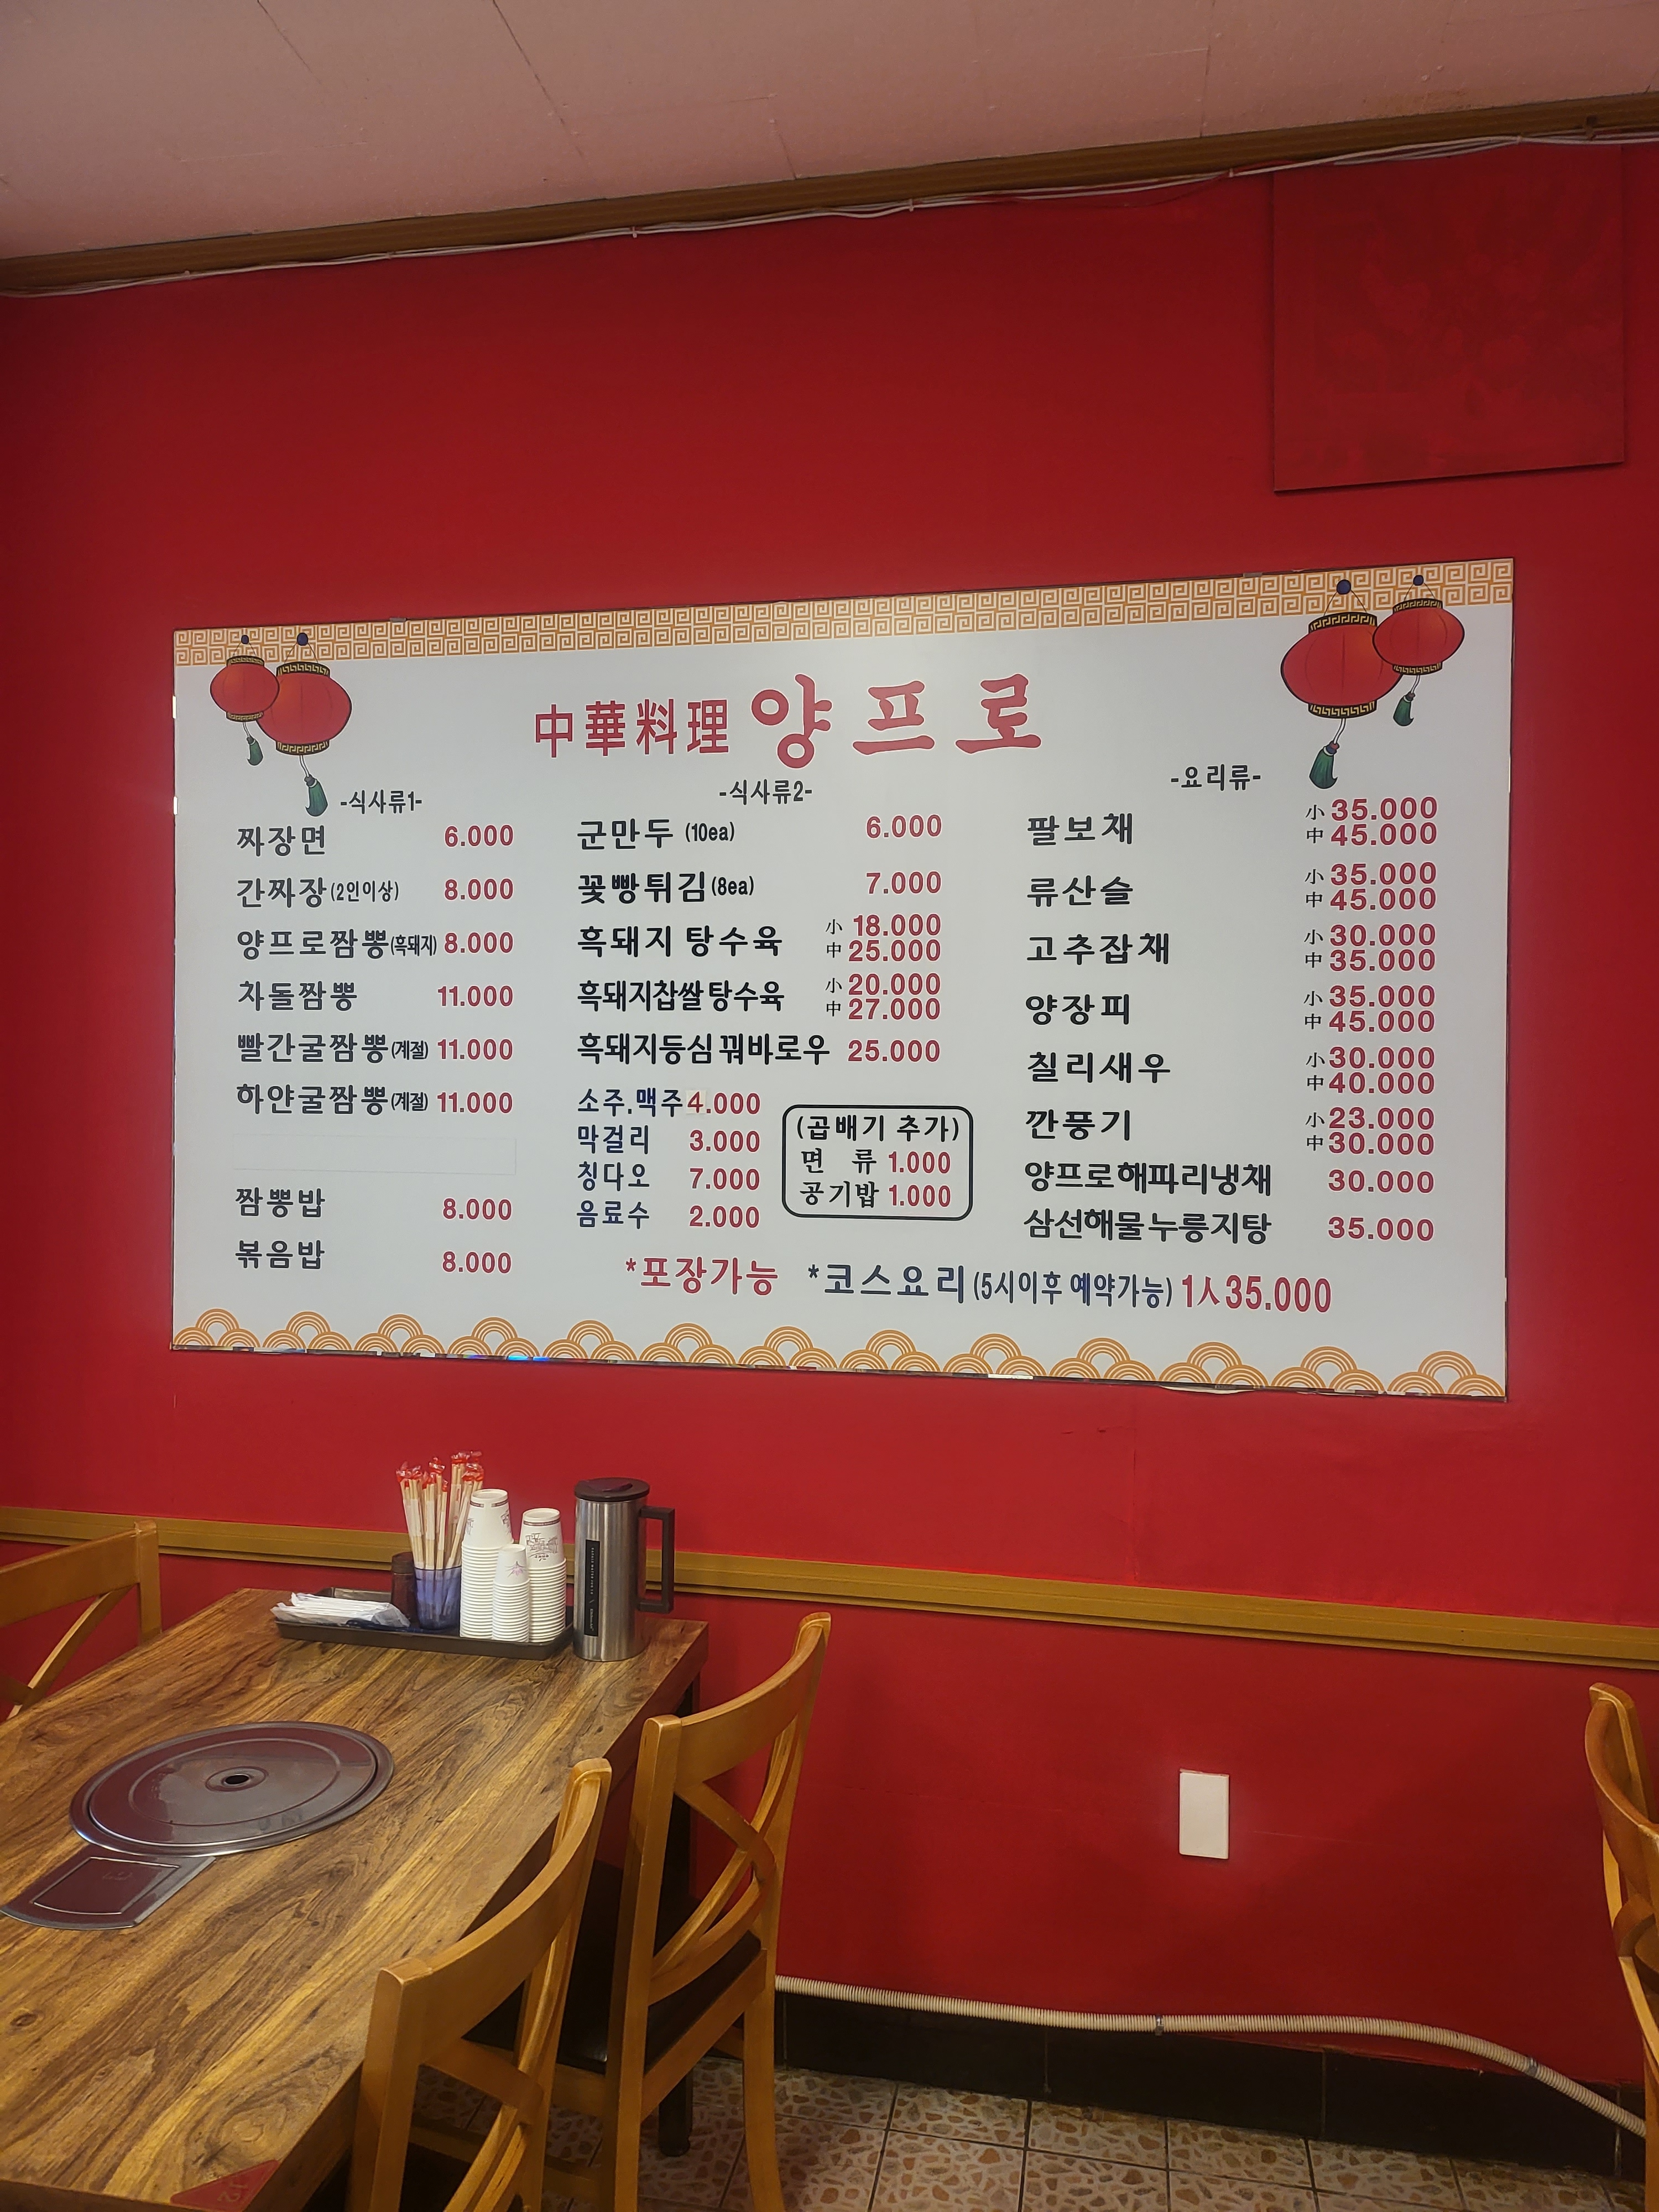 中華料理 양프로
-식사류1-
짜장면 6.000
간짜장(2인이상) 8.000
양프로짬뽕(흑돼지) 8.000
차돌짬뽕 11.000
빨간굴짬뽕(계절) 11.000
하얀굴짬뽕(계절) 11.000
짬뽕밥 8.000
볶음밥 8.000
-식사류2-
군만두 (10ea) 6.000
꽃빵튀김(8ea) 7.000
흑돼지 탕수육 小 18.000
中 25.000
흑돼지찹쌀탕수육 小 20.000
中 27.000
흑돼지등심 꿔바로우 25.000
소주.맥주 4.000
막걸리 3.000
칭다오 7.000
음료수 2.000
(곱배기 추가)
면 류 1.000
공기밥 1.000
-요리류-
팔보채 小 35.000
中 45.000
류산슬 小 35.000
中 45.000
고추잡채 小 30.000
中 35.000
양장피 小 35.000
中 45.000
칠리새우 小 30.000
中 40.000
깐풍기 小 23.000
中 30.000
양프로해파리냉채 30.000
삼선해물누룽지탕 35.000
*포장가능 *코스요리(5시이후 예약가능) 1人 35.000